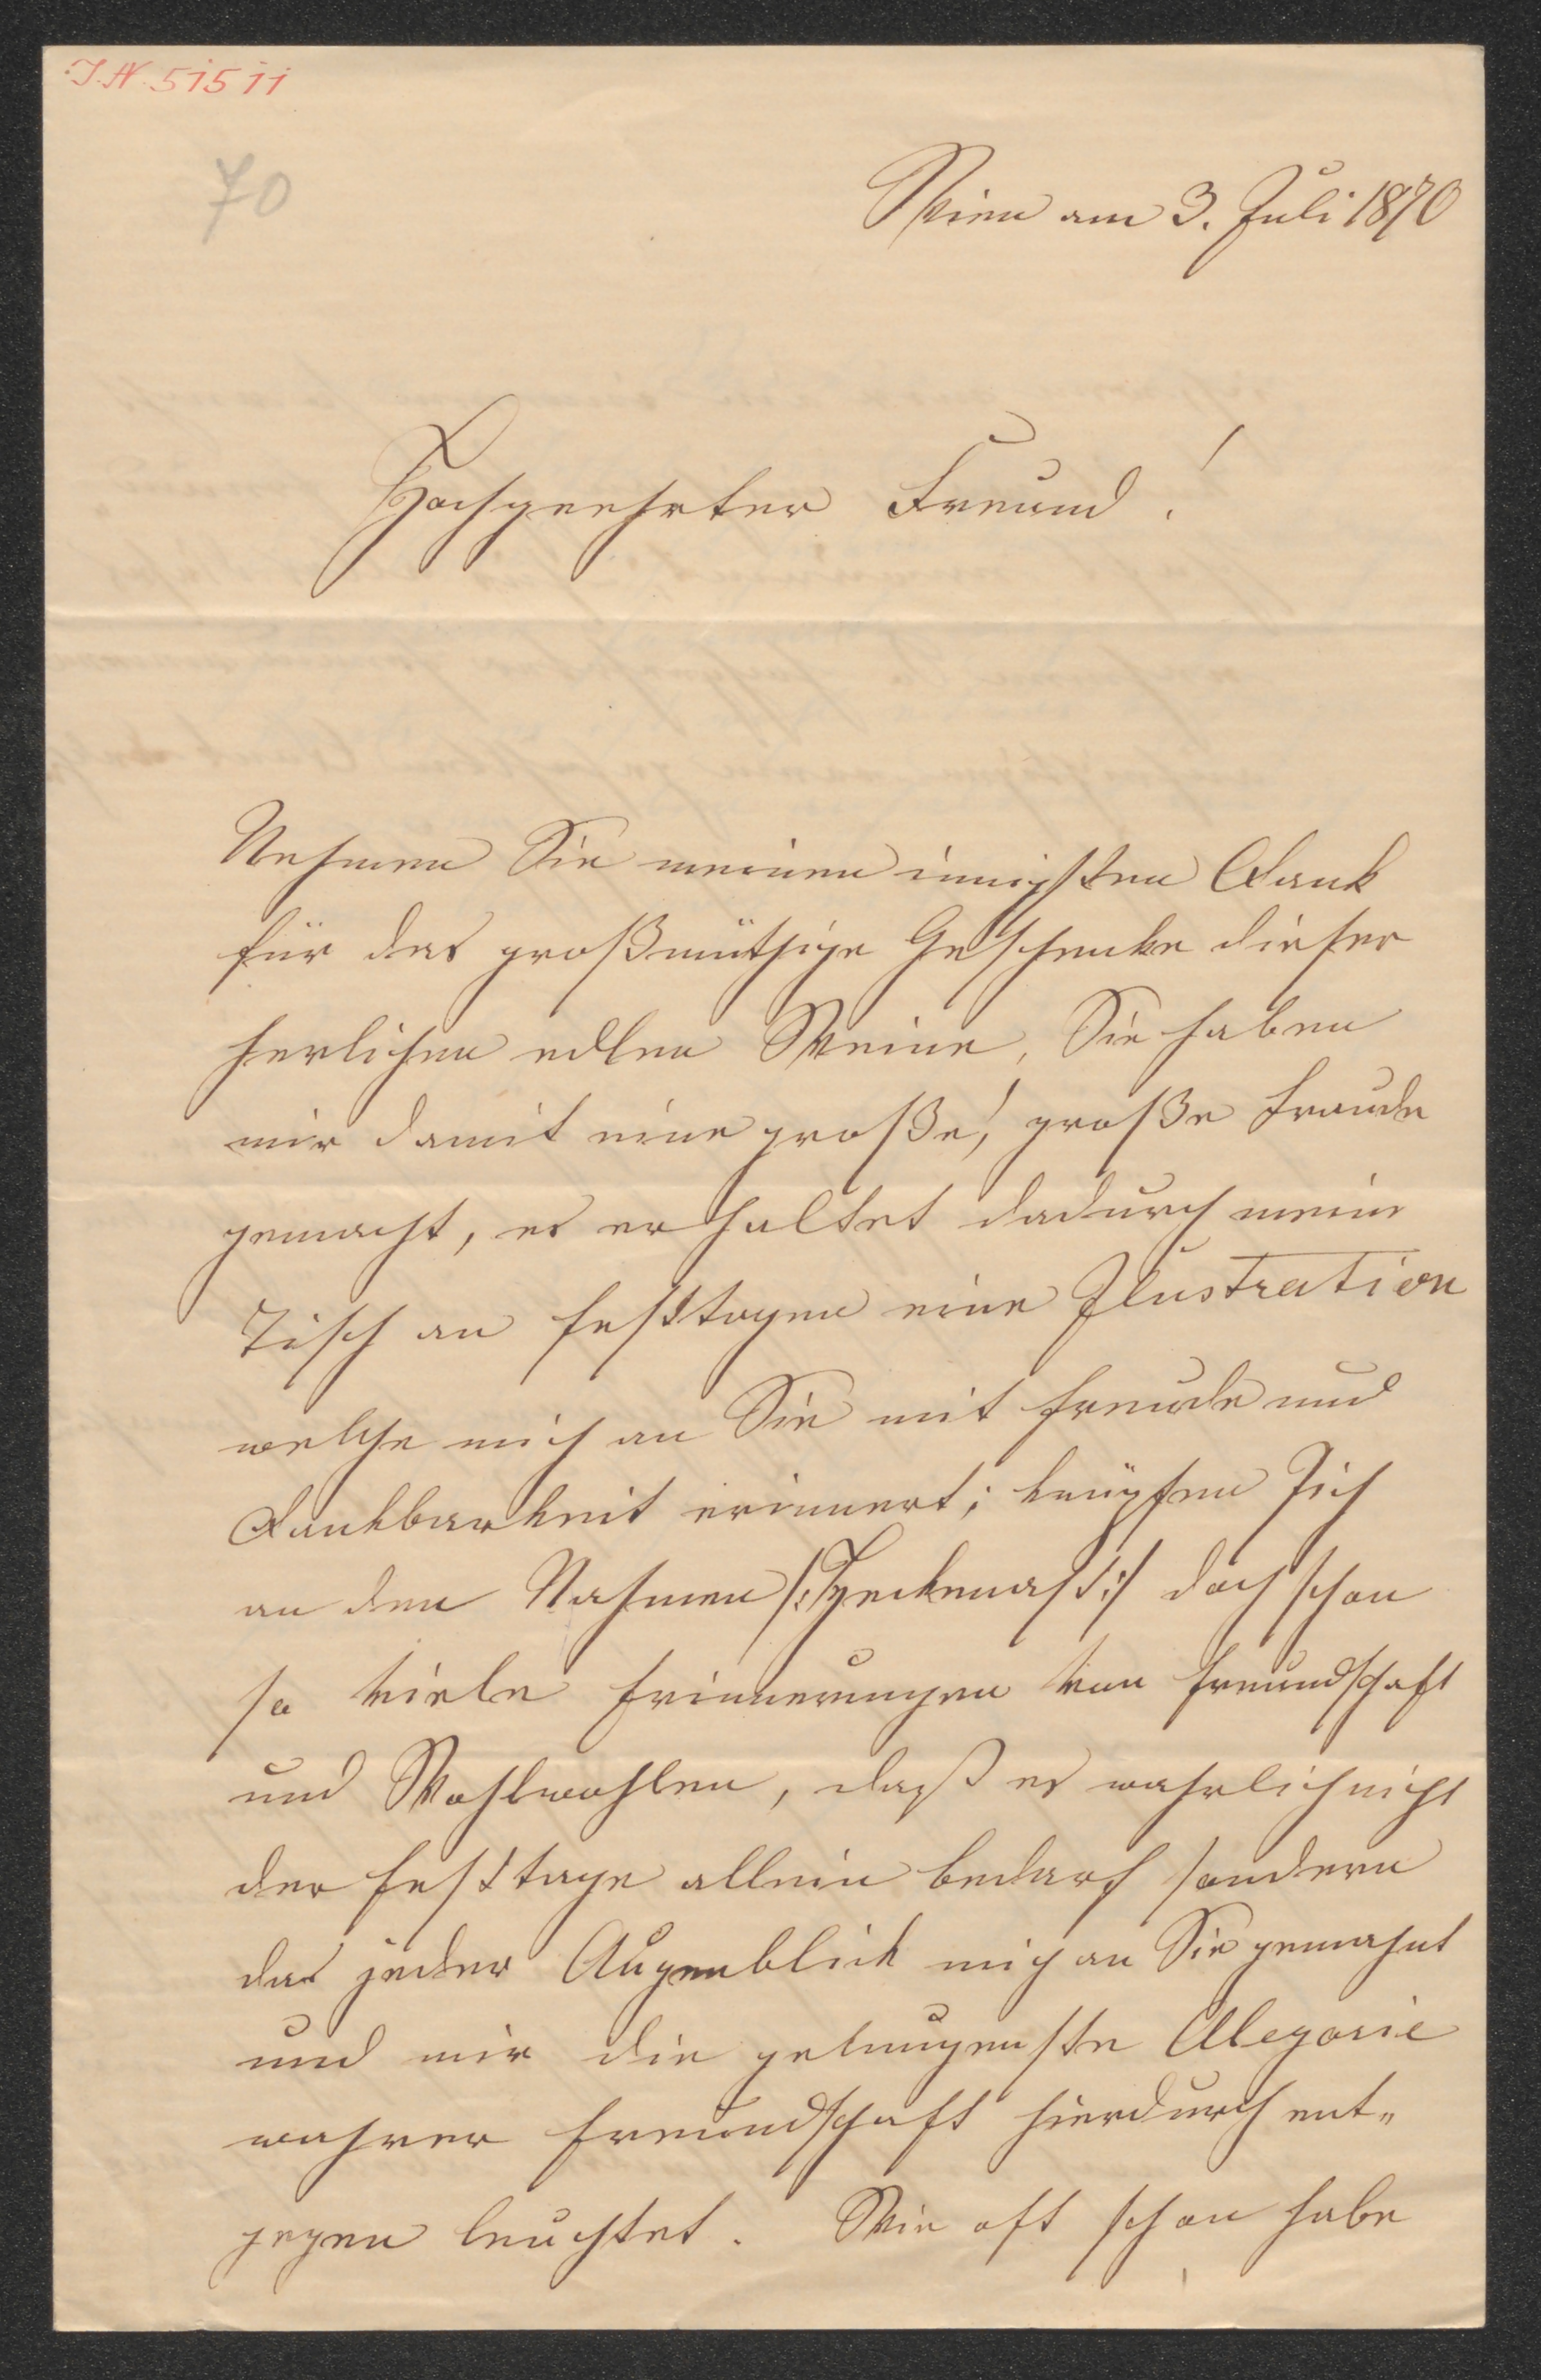 I.N. 51511
70
Wien am 3. Juli 1870
Hochgeehrter Freund!
Nehmen Sie meinen innigsten Dank
für das großmüthige Geschenke dieser
herlichen edlen Weine, Sie haben
mir damit eine große! große Freude
gemacht, es erhaltet dadurch mein
Tisch an Festtagen eine Ilustration
welche mich an Sie mit Freude und
Dankbarkeit erinnert; knüpfen sich
an den Nahmen /: Heckenast :/ doch schon
so viele Erinnerungen von Freundschaft
und Wohlwohlen, daß es wahrlich nicht
der Festtage allein bedarf sondern
das jeder Augenblick mich an Sie gemahnt
und mir die gelungenste Alegorie
wahrer Freundschaft hierdurch ent„
gegen leuchtet. Wie oft schon habe